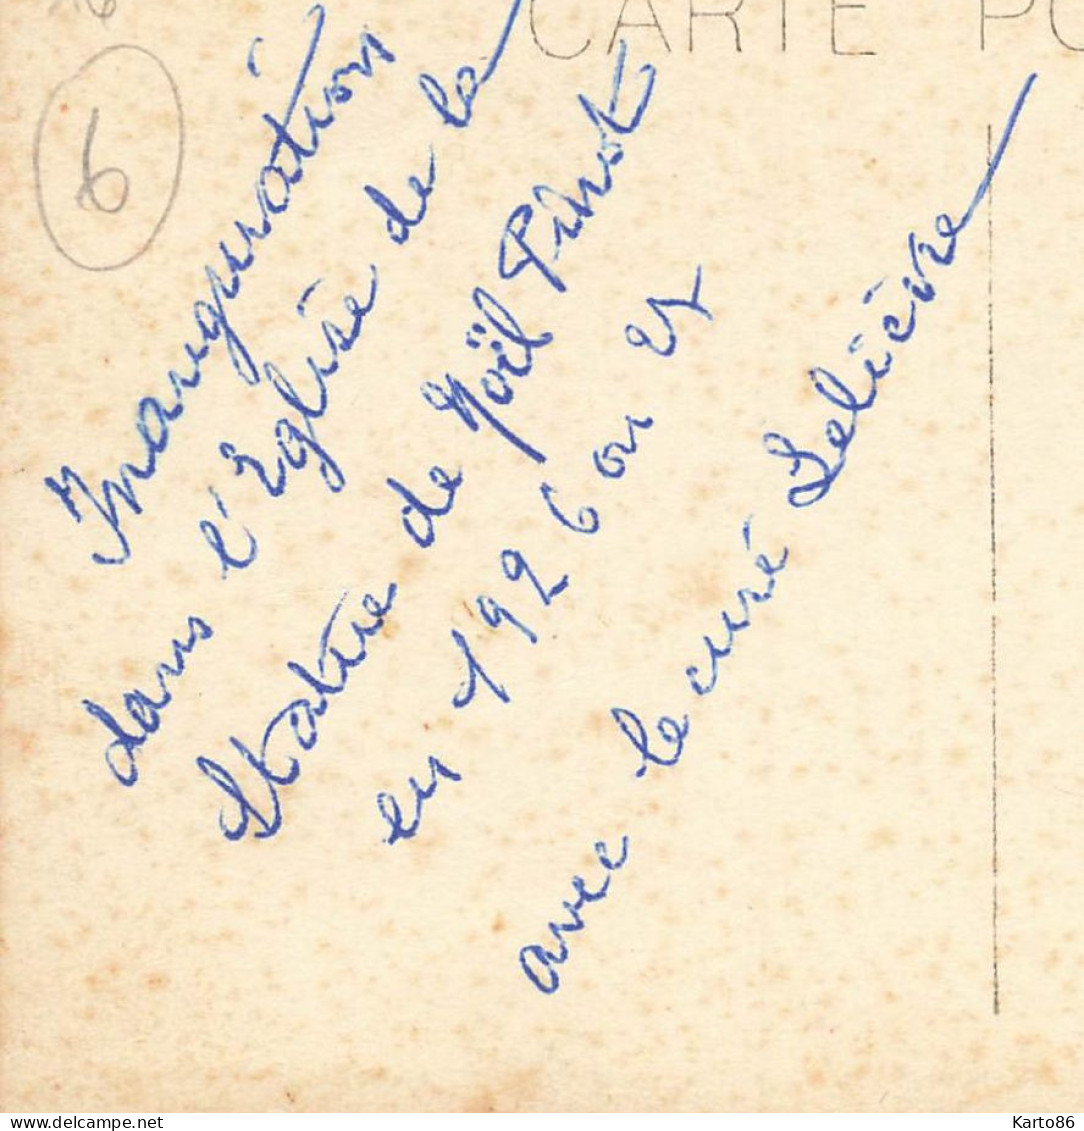 CARTE PO
6
Inauguration
dans l'Eglise de la
Statue de Noël Pinot
en 1926 ou 27
avec le curé Lelièvre
Karto86